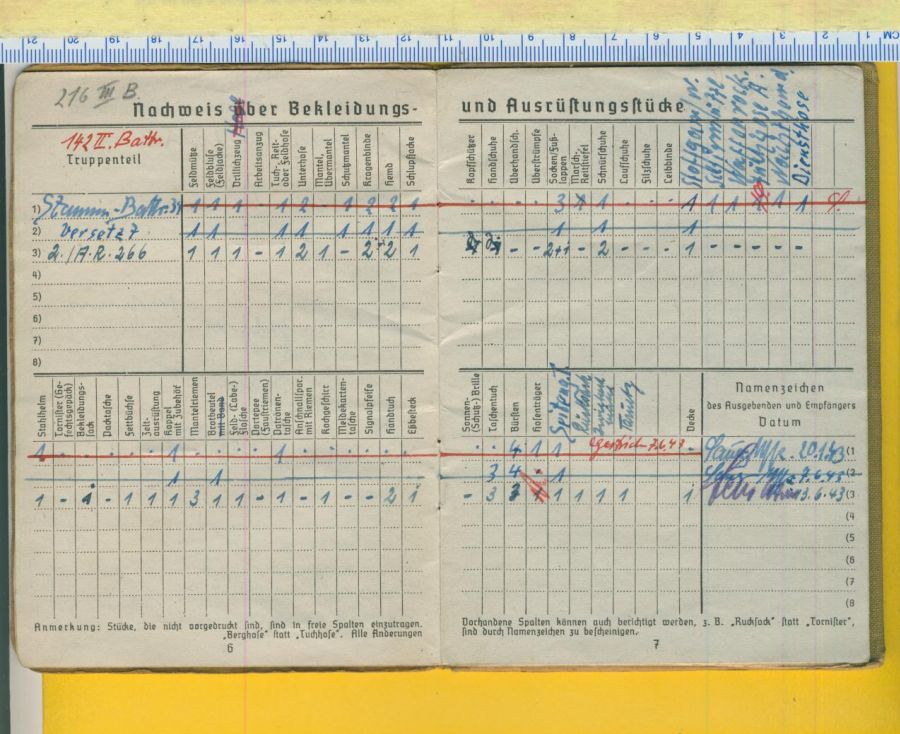 21 20 19 18 17 16 15 14 13 12 11 10 9 8 7 6 5 4 3 2 1 CM
216 III B.
Nachweis über Bekleidungs- und Ausrüstungsstücke
142 II. Battr.
Truppenteil
Feldmütze
Feldbluse (Feldjacke)
Drillichzeug
Arbeitsanzug
Tuch-, Reit- oder Feldhose
Unterhose
Mantel, Übermantel
Schutzmantel
Kragenbinde
Hemd
Schlupfjacke
Kopfschützer
Handschuhe
Überhandsch.
Überstrümpfe
Socken/Fuß-lappen
Marsch-, Reitstiefel
Schnürschuhe
Laufschuhe
Filzschuhe
Leibbinde
Diensthose
1) Stamm-Battr. 1 1 1 · · 1 2 · 1 2 2 1 · · · · 3 1 · · · 1 1 1 1 1
2) versetzt 1 1 1 1 1 1 1 1 1 1 1
3) 2./A.R. 266 1 1 1 - 1 2 1 - 2 2 1 - - 2+1 - 2 - - - 1 - - - - -
4)
5)
6)
7)
8)
Stahlhelm
Tornister (Ge-fechtsgepäck)
Bekleidungs-sack
Packtasche
Fettbüchse
Zelt-ausrüstung
Koppel mit Zubehör
Mantelriemen
Brotbeutel mit Band
Feld- (Labe-) Flasche
Portepee (Faustriemen)
Patronen-tasche
Anschnallspor. mit Riemen
Kochgeschirr
Meldekarten-tasche
Signalpfeife
Handtuch
Eßbesteck
Sonnen- (Schutz-) Brille
Taschentuch
Bürsten
Hosenträger
Decke
Namenzeichen
des Ausgebenden und Empfängers
Datum
1 · · · · · 1 · · · · 1 · · · · · · · · 4 1 1 7.6.43 - 20.1.43 (1
1 1 3 4 · 1 (2
1 - 1 - 1 1 1 3 1 1 - 1 - 1 - - 2 1 - 3 3 1 1 1 1 1 1 3.6.43 (3
(4
(5
(6
(7
(8
Anmerkung: Stücke, die nicht vorgedruckt sind, sind in freie Spalten einzutragen.
„Berghose" statt „Tuchhose". Alle Änderungen
6
Vorhandene Spalten können auch berichtigt werden, z. B. „Rucksack" statt „Tornister",
sind durch Namenzeichen zu bescheinigen.
7